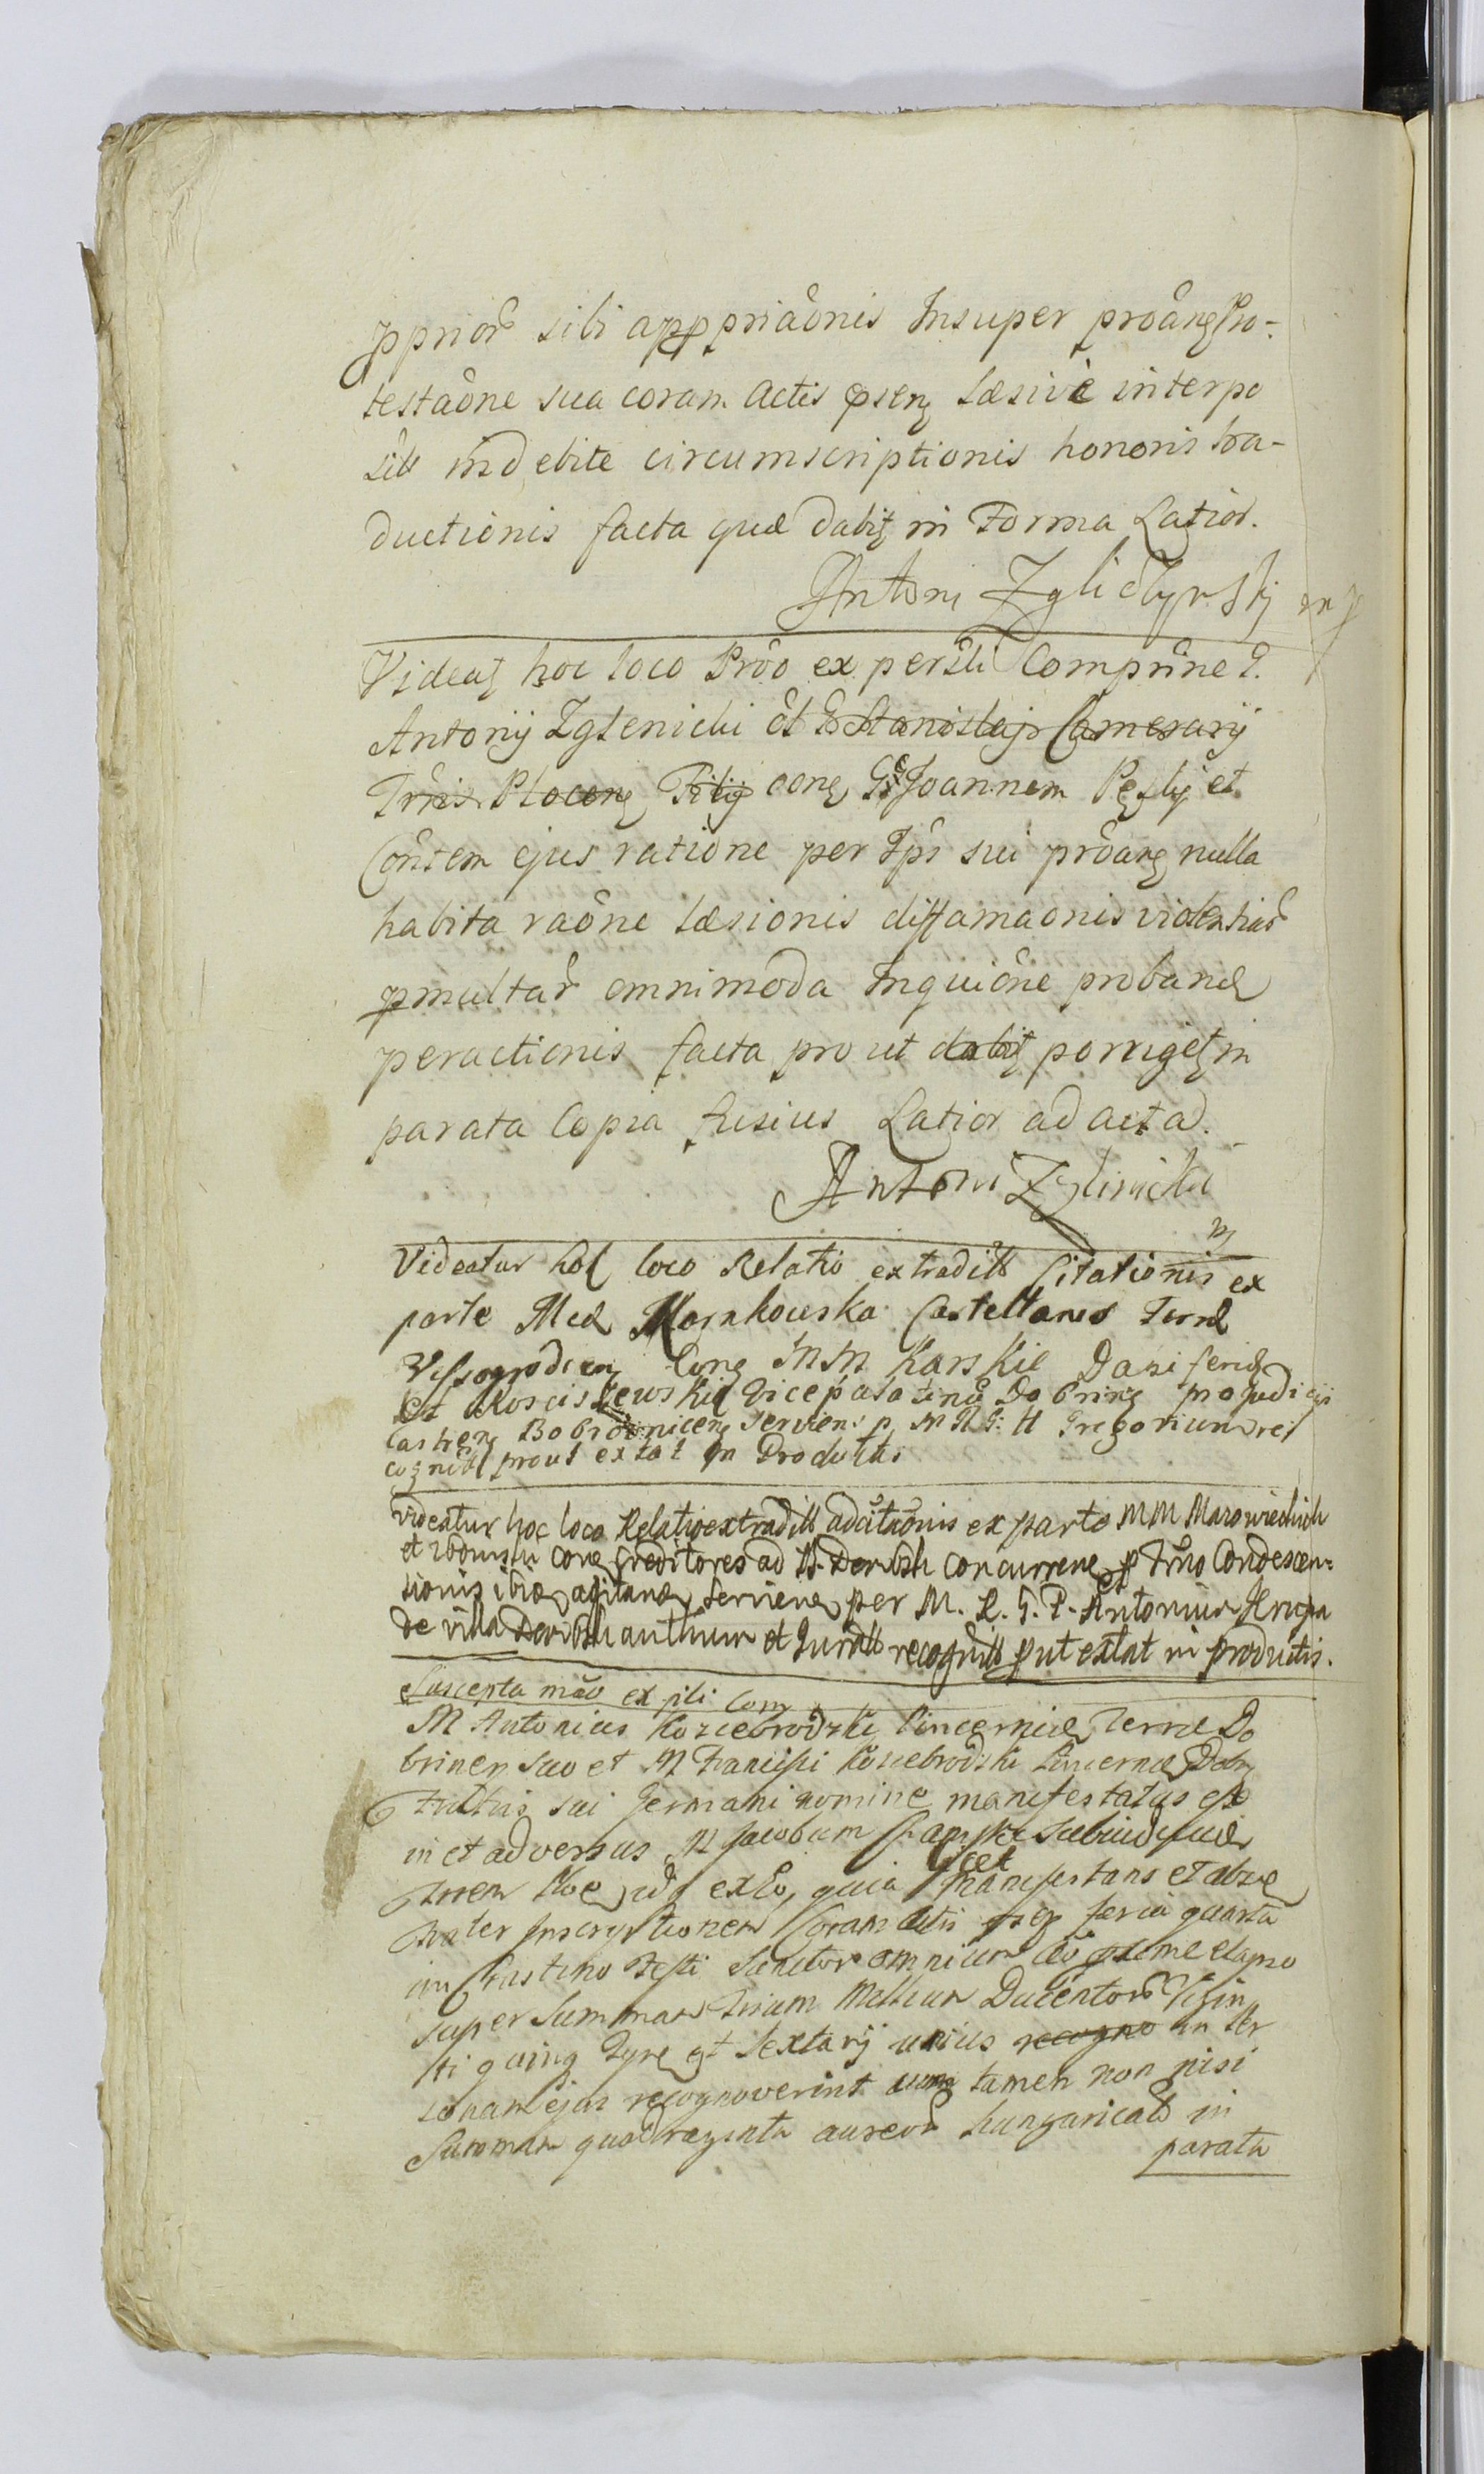 pprior sibi appropriaonis Insuper proang Pro-
testaone sua coram Actis psen læsivè interpo
sits indebite circumscriptionis honoris tra-
ductionis facta quæ dabit in Forma Latior.
Antoni mp
Videat hoc loco Prôo ex persli Comprîne G.
Antonij Zglenicki et G Stanislaji Camerarij
Trris Plocen Filij con G Joannem et
Contem ejus ratione per Ipi sui prôan nulla
habita raône læsionis diffamaonis violentiar
pmultar omnimoda Inquiône proband
peractionis facta prout dabit porriget in
parata Copia fusius Latior ad acta.
Antoni Zglinicki
mp
Videatur hoc loco Relatio extradits Citationis ex
parte Mcæ Mornkowska Castellanes Terræ
Vissogrodien Con MM Karskie Dapiferid
Et Rosciszewskie Vicepalatino Dobrin pro Judicijs
Castren Bobrownicen servien p M R G: H Gregorium re
cognits prout extat in Productis
videatur hoc loco Relatio extradits adcitâonis ex parte MM Marowieckich
et con Creditores ad B. Concurren p Trno Condescen-
sionis ibid agitand servien per M. R. G. P. Antonium
de villa et Jurats recognits put extat in productis.
Suscepta mâo ex pli Con
M Antonius Koziebrodzki Pincernid Terræ Do
brinen suo et M Francisci Koziebrodzki Pincernæ Dobr
Fratris sui Germani nomine manifestatus est
in et adversus M Jacobum
hoc id ex Eo, quia licet manifestans et
inter Inscriptionem Coram Actis psen feria quarta
in Crastino Festi Sanctor omnium pxime elapso
super Summam Trium Millium Ducentor Vigin
ti quinq Tynf et Sextarij unius recogno in Per
sonam ejus recognoverint cum tamen non nisi
Summam quadraginta aureor hungaricals in
parata